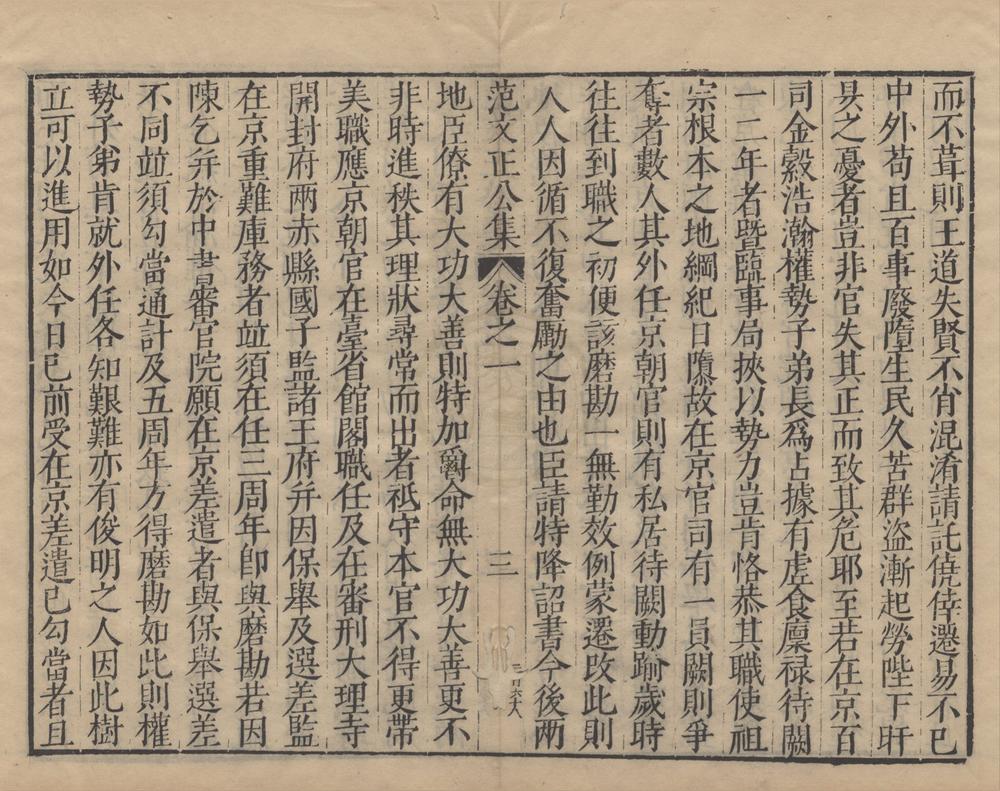 而不葺則王道失賢不肖混淆請託僥倖遷易不已
中外苟且百事廢墮生民久苦群盜漸起勞陛下旰
昃之憂者豈非官失其正而致其危耶至若在京百
司金穀浩瀚權勢子弟長爲占據有虛食廩禄待闕
一二年者暨臨事局挾以勢力豈肯恪恭其職使祖
宗根本之地綱紀日隳故在京官司有一員闕則爭
奪者數人其外任京朝官則有私居待闕動踰歲時
往往到職之初便該磨勘一無勤效例蒙遷改此則
人人因循不復奮勵之由也臣請特降詔書今後兩
范文正公集 卷之一 三
地臣僚有大功大善則特加爵命無大功大善更不
非時進秩其理狀尋常而出者祗守本官不得更帶
美職應京朝官在臺省館閣職任及在審刑大理寺
開封府兩赤縣國子監諸王府并因保舉及選差監
在京重難庫務者並須在任三周年卽與磨勘若因
陳乞并於中書審官院願在京差遣者與保舉選差
不同並須勾當通計及五周年方得磨勘如此則權
勢子弟肯就外任各知艱難亦有俊明之人因此樹
立可以進用如今日已前受在京差遣已勾當者且